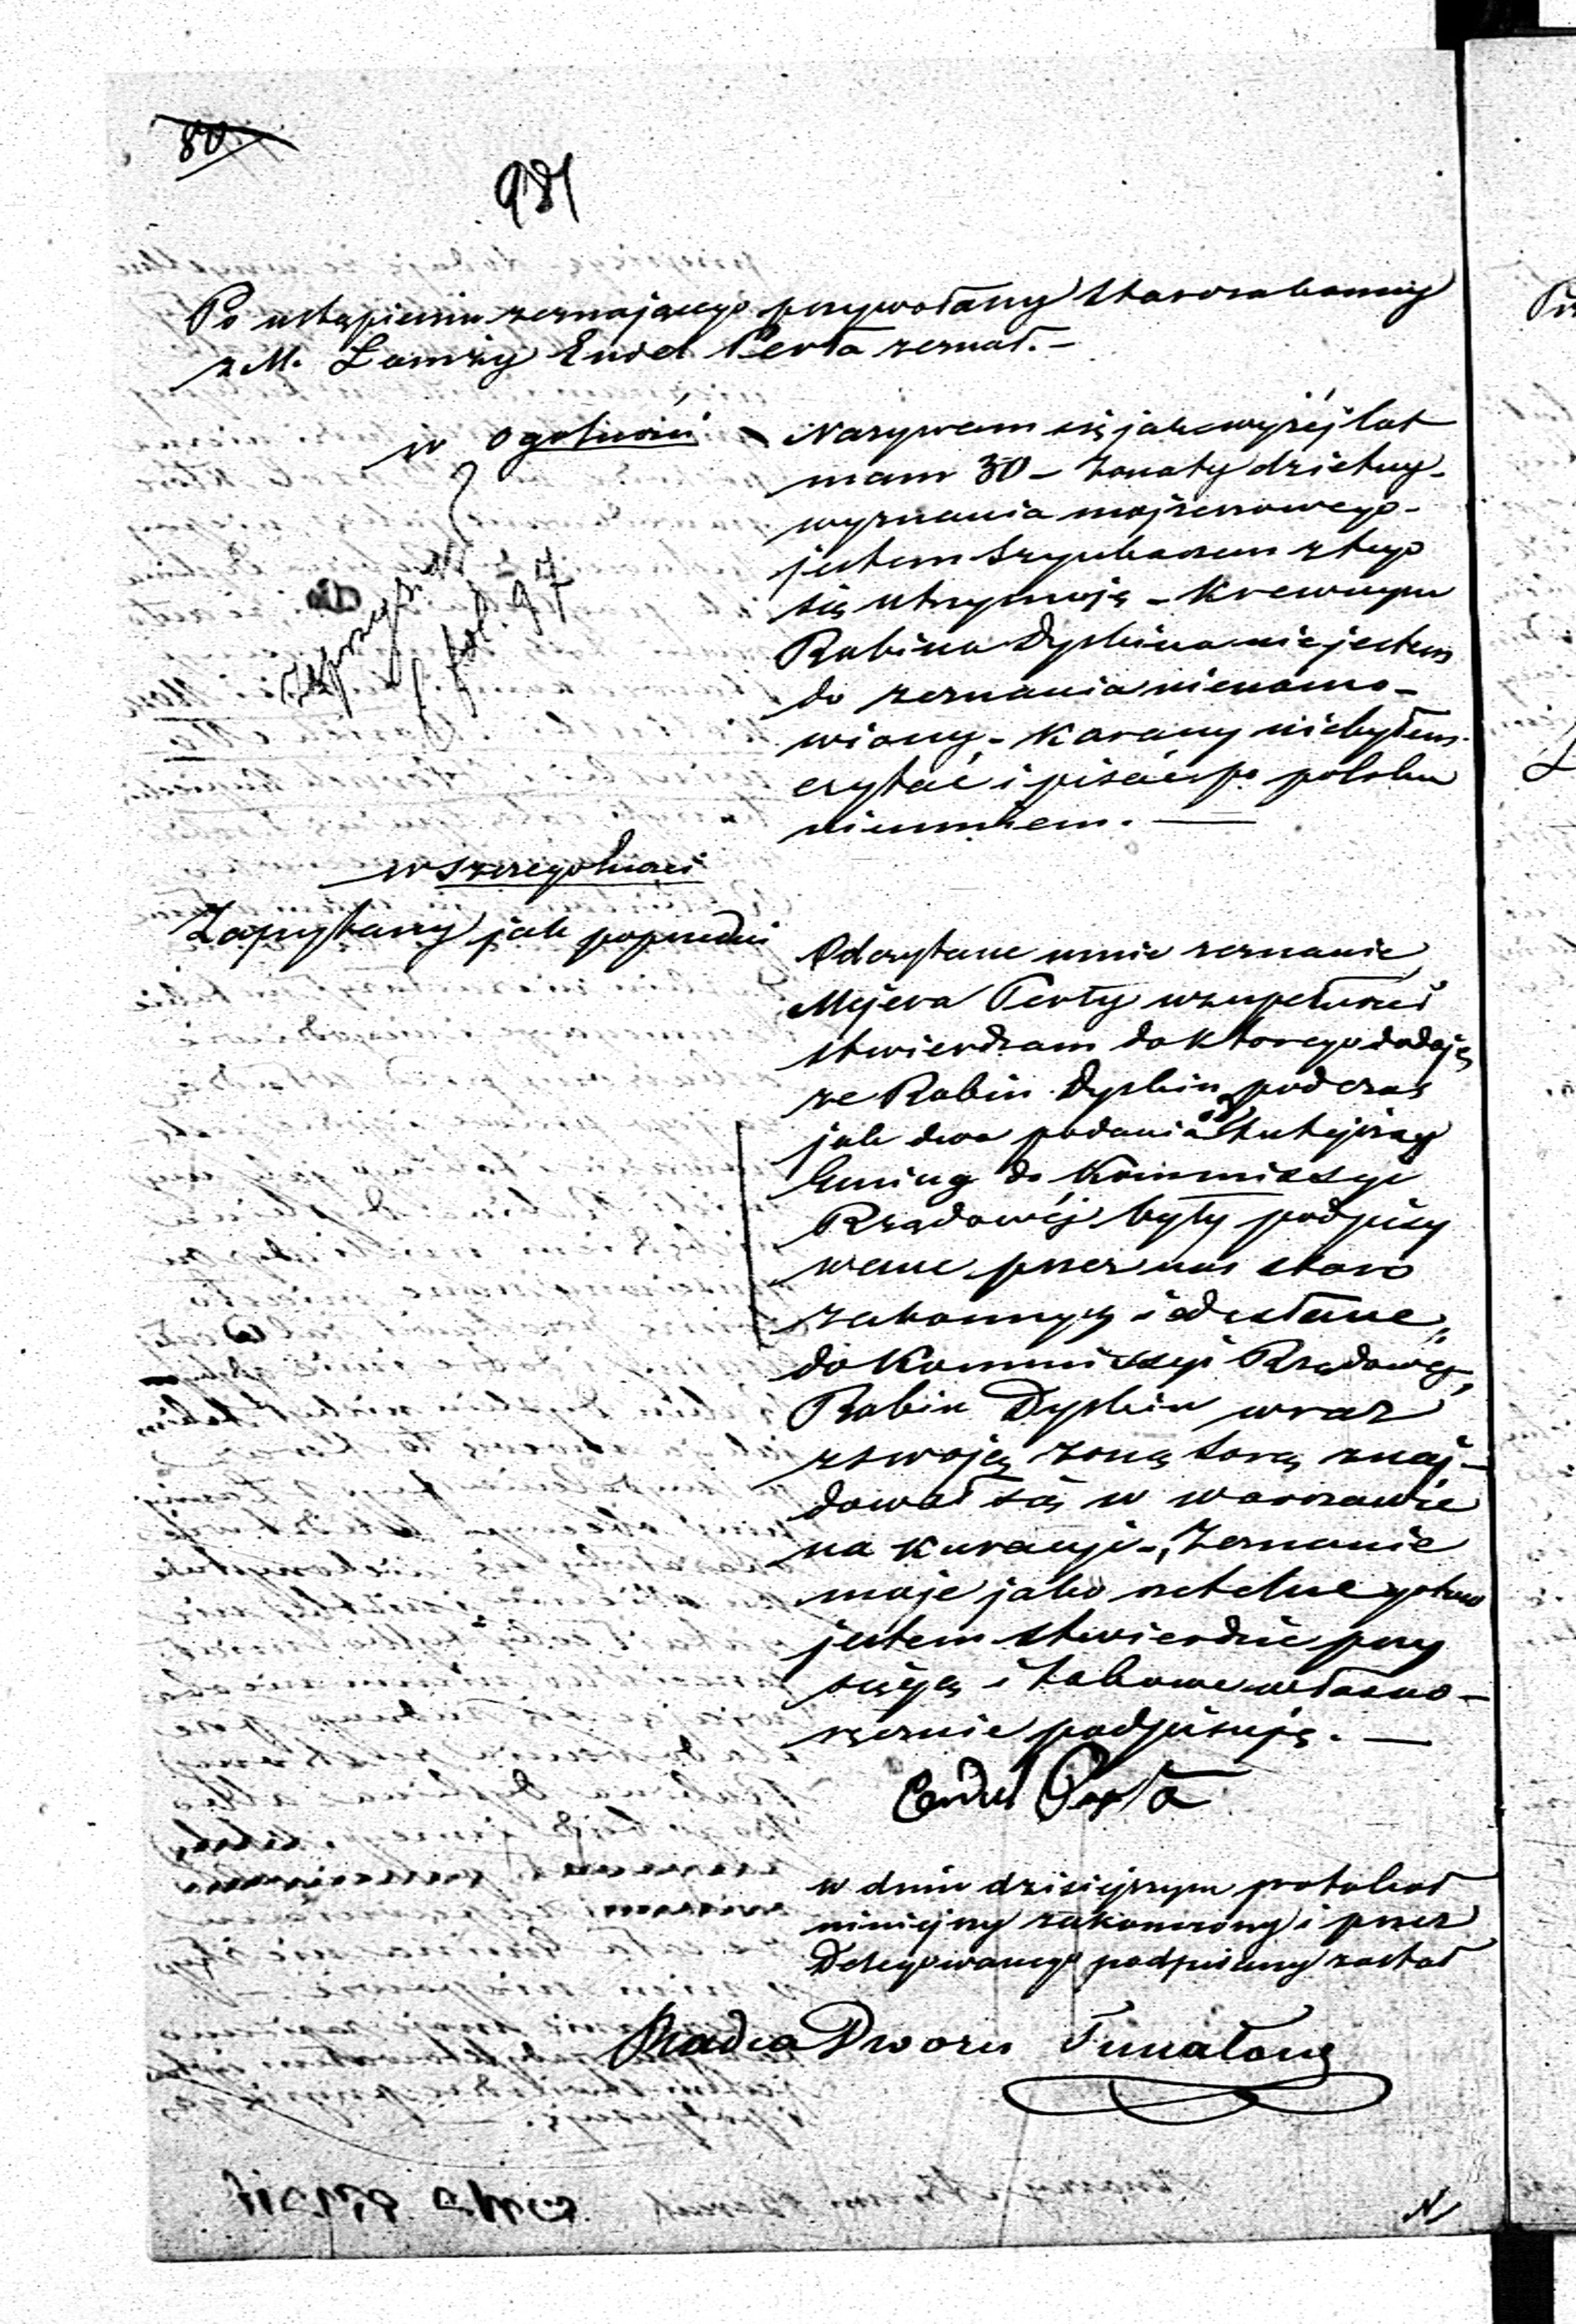 80
981
Po ustąpieniu zeznającego przywołany Starozakonny
z M. Łomży Endel Perła zeznał. –
w ogolności
Nazywam się jak wyżéj lat
mam 30 – żonaty dzietny –
wyznania mojżeszowego –
jestem Szynkarzem z tego
się utrzymuję – Krewnym
Rabina Dyskina nie jestem
do zeznania nienamo-
wiony – Karany niebyłem
czytać i pisać po polsku
nieumiem. —
zaprzysiężony
fol. 97
w szczególności
Zapytany jak poprzedni
Odczytane mnie zeznanie
Mejera Perły w zupełności
stwierdzam do ktorego dodaję
że Rabin Dyskin podczas
jak dwa podania od tutejszej
Gminy do Kommissyi
Rządowéj były podpisy
wane przez nas staro
zakonnych i odesłane
do Kommissyi Rządowéj,
Rabin Dyskin wraz
z swoją żoną Sorą znaj-
dował się w Warszawie
na kuracyi –, Zeznanie
moje jako rzetelne gotow
jestem stwierdzić przy
sięgą i takowe własno-
ręcznie podpisuję. —
Endel Perła
w dniu dzisiejszym protokół
niniejszy zakończony i przez
Delegowanego podpisany został
Radca Dworu